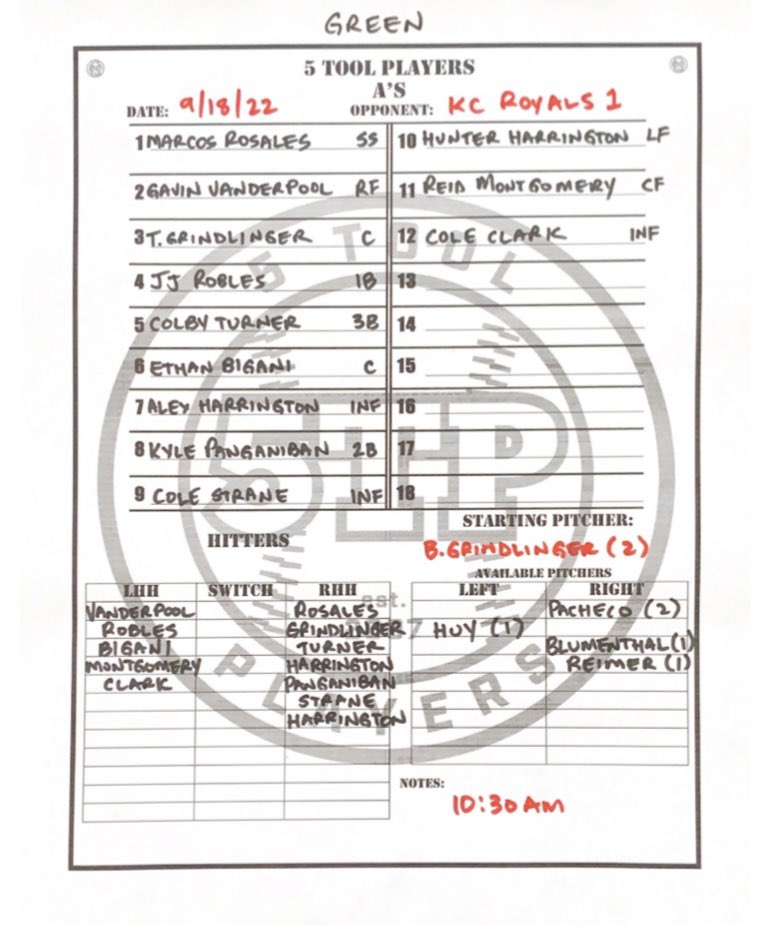 GREEN
5 TOOL PLAYERS
A'S
DATE: 9/18/22 OPPONENT: KC ROYALS 1
1 MARCOS ROSALES SS
2 GAVIN VANDERPOOL RF
3 T. GRINDLINGER C
4 JJ ROBLES 1B
5 COLBY TURNER 3B
6 ETHAN BIGANI C
7 ALEX HARRINGTON INF
8 KYLE PANGANIBAN 2B
9 COLE STRANE INF
10 HUNTER HARRINGTON LF
11 REID MONTGOMERY CF
12 COLE CLARK INF
13
14
15
16
17
18
STARTING PITCHER:
B. GRINDLINGER (2)
HITTERS
LHH SWITCH RHH
VANDERPOOL ROSALES
ROBLES GRINDLINGER
BIGANI TURNER
MONTGOMERY HARRINGTON
CLARK PANGANIBAN
STRANE
HARRINGTON
AVAILABLE PITCHERS
LEFT RIGHT
PACHECO (2)
HUY (1)
BLUMENTHAL (1)
REIMER (1)
NOTES:
10:30 AM
5 TOOL
5TP
est.
PLAYERS